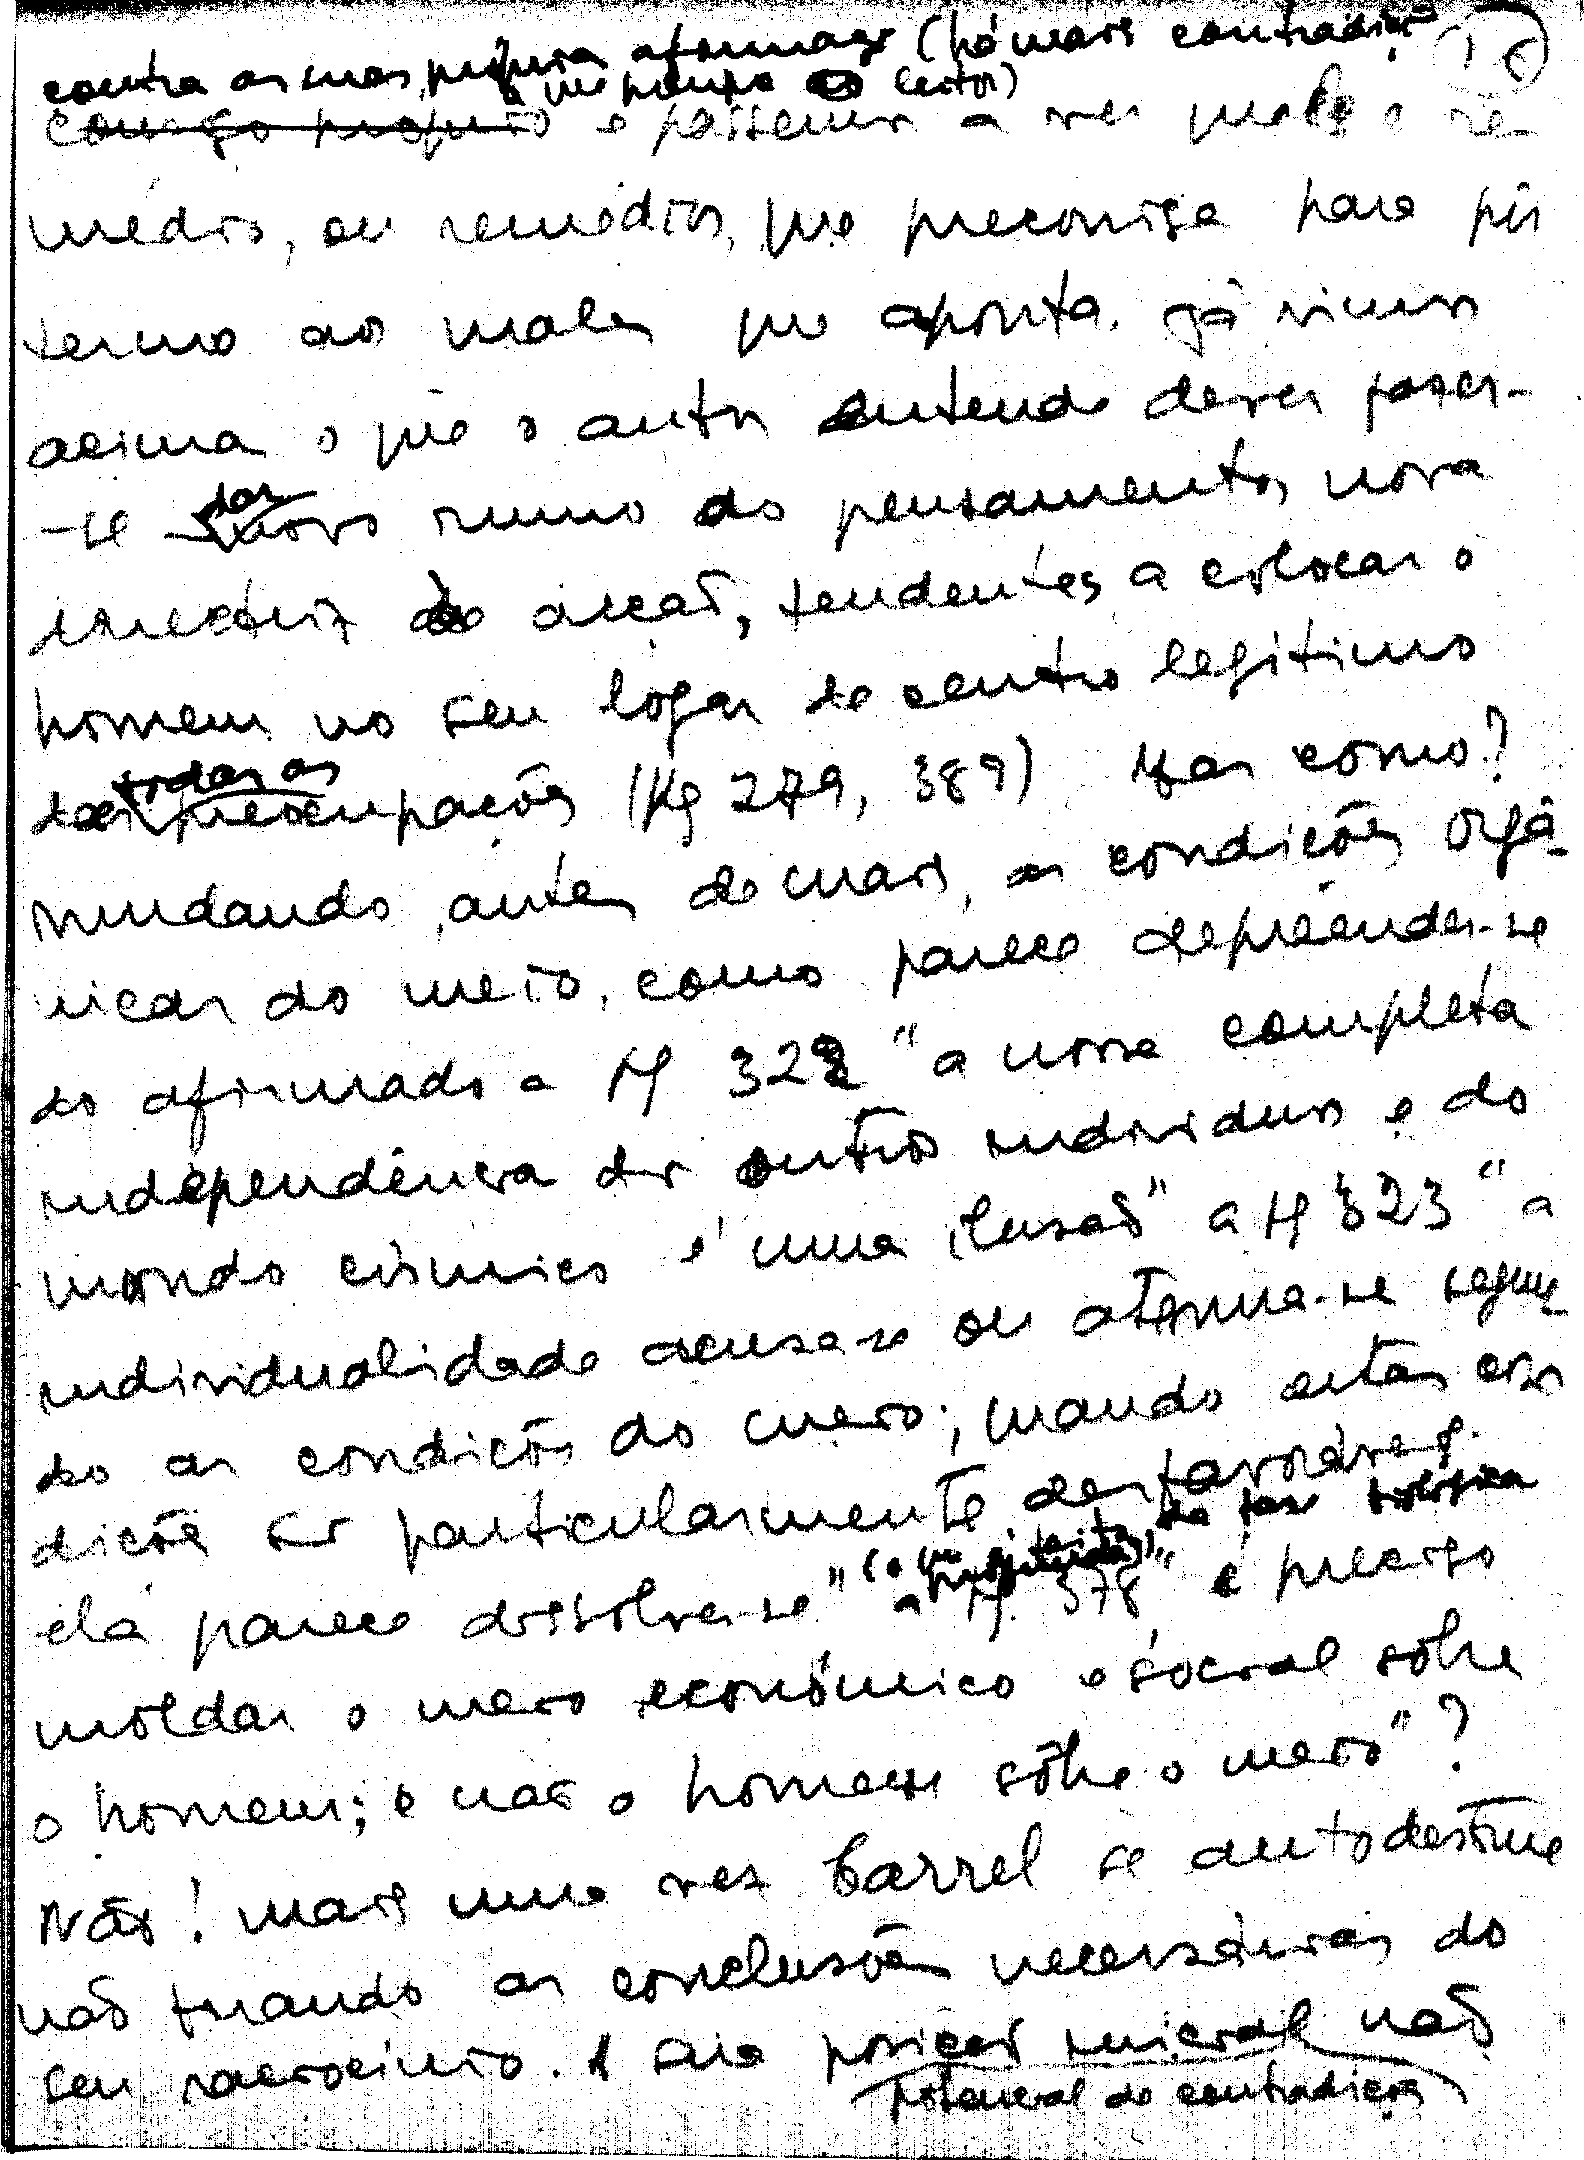 contra as suas próprias afirmações (há mais contradições
a que poupo o leitor)
comigo próprio e passemos a ver qual o re-
médio, ou remédios, que preconisa para pôr
termo aos males que aponta. Já vimos
acima o que o autor entende dever fazer-
-se dar novo rumo ao pensamento, nova
directriz à acção, tendentes a colocar o
homem no seu logar de centro legítimo
de todas as preocupações (Pg 279, 389) Mas como?
mudando, antes de mais, as condições orgâ-
nicas do meio, como parece depreender-se
do afirmado a pg 322 "a nossa completa
independência dos outros indivíduos e do
mundo cósmico é uma ilusão" a pg 323 "a
individualidade acusa-se ou atenua-se segun
do as condições do meio; quando estas con
dições são particularmente desfavoráveis
ela parece dissolver-se" a pg. 378 "é preciso
do faxe biológica
moldar o meio económico e social sôbre
o homem; e não o homem sôbre o meio"?
Não! mais uma vez Carrel se autodestroe
não tirando as conclusões necessárias do
seu raciocínio. A sua posição inicial não
potencial de contradições